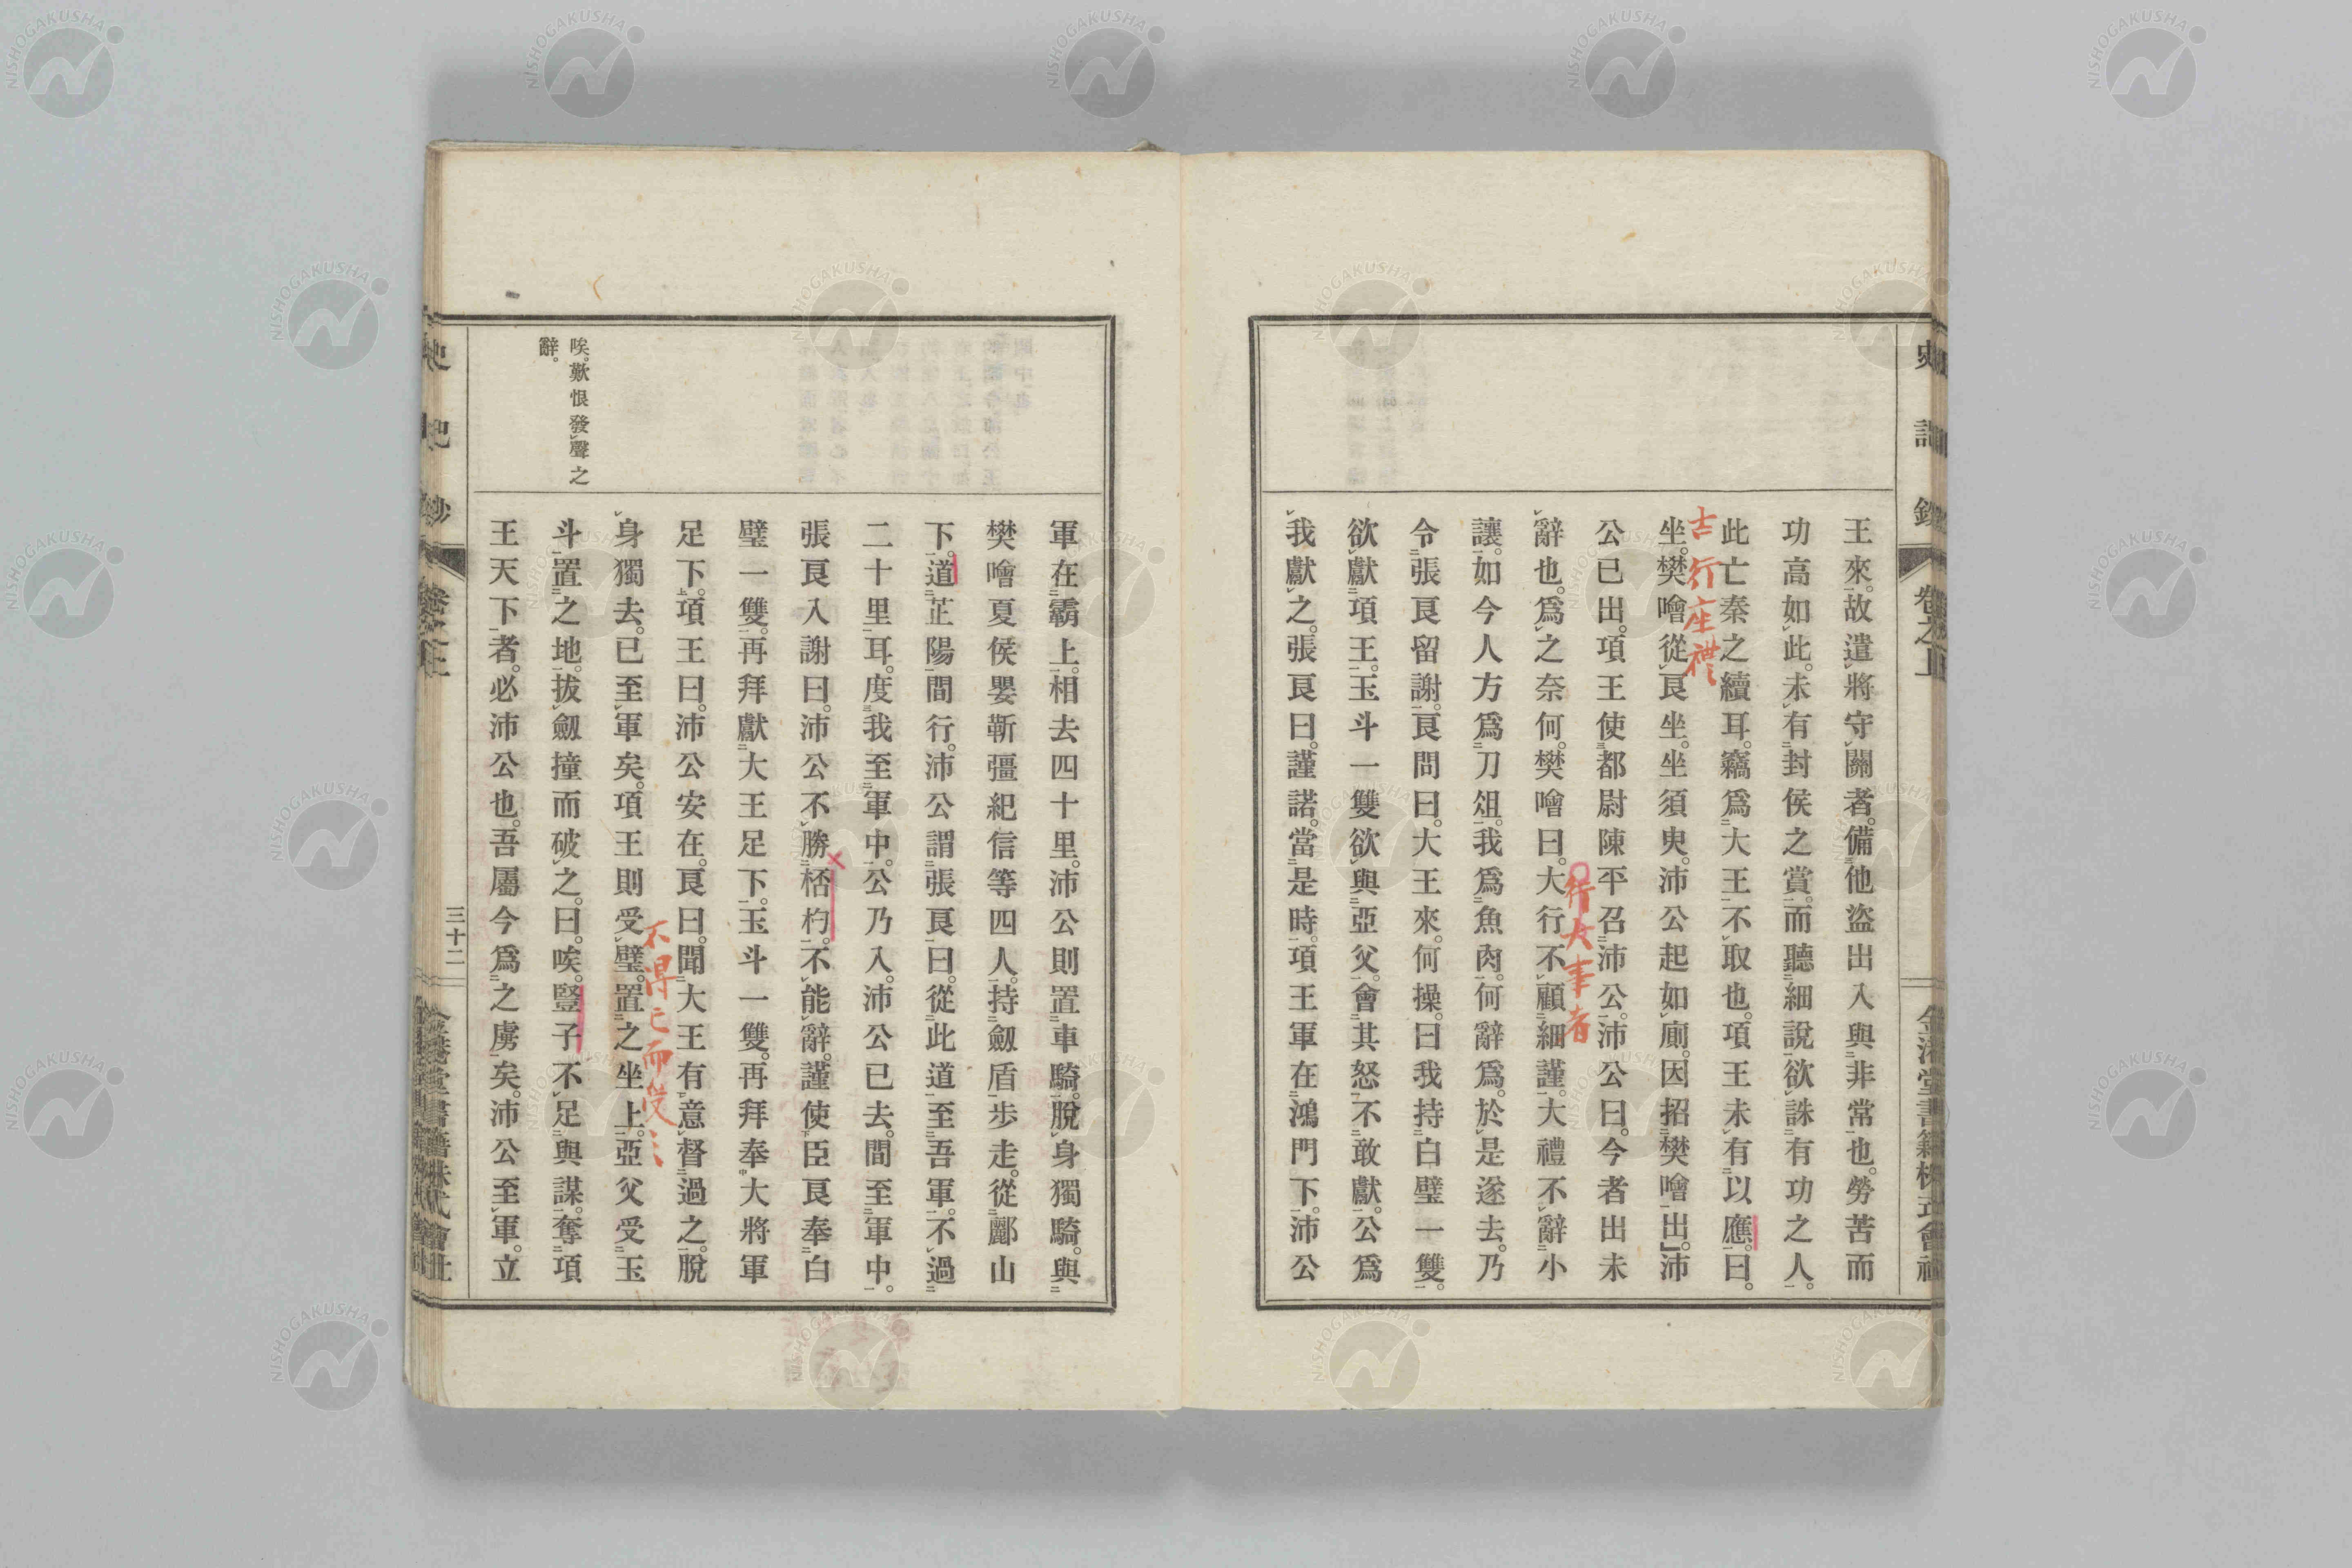 王來。故遣將守關者。備他盜出入與非常也。勞苦而
功高如此。未有封侯之賞。而聽細說。欲誅有功之人。
此亡秦之續耳。竊爲大王不取也。項王未有以應。曰。
坐。樊噲從良坐。坐須臾。沛公起如廁。因招樊噲出。沛
公已出。項王使都尉陳平召沛公。沛公曰。今者出未
辭也。爲之奈何。樊噲曰。大行不顧細謹。大禮不辭小
讓。如今人方爲刀俎。我爲魚肉。何辭爲。於是遂去。乃
令張良留謝。良問曰。大王來。何操。曰我持白璧一雙。
欲獻項王。玉斗一雙欲與亞父。會其怒不敢獻。公爲
我獻之。張良曰。謹諾。當是時。項王軍在鴻門下。沛公
吉行座禮
行大事者
軍在霸上。相去四十里。沛公則置車騎。脫身獨騎。與
樊噲夏侯嬰靳彊紀信等四人。持劔盾步走。從酈山
下。道芷陽間行。沛公謂張良曰。從此道至吾軍。不過
二十里耳。度我至軍中。公乃入。沛公已去。間至軍中。
張良入謝曰。沛公不勝桮杓。不能辭。謹使臣良奉白
璧一雙。再拜獻大王足下。玉斗一雙。再拜奉大將軍
足下。項王曰。沛公安在。良曰。聞大王有意督過之。脫
身獨去。已至軍矣。項王則受璧。置之坐上。亞父受玉
斗置之地。拔劔撞而破之。曰。唉。豎子不足與謀。奪項
王天下者。必沛公也。吾屬今爲之虜矣。沛公至軍。立
唉。歎恨發聲之
辭。
三十二
NISHOGAKUSHA